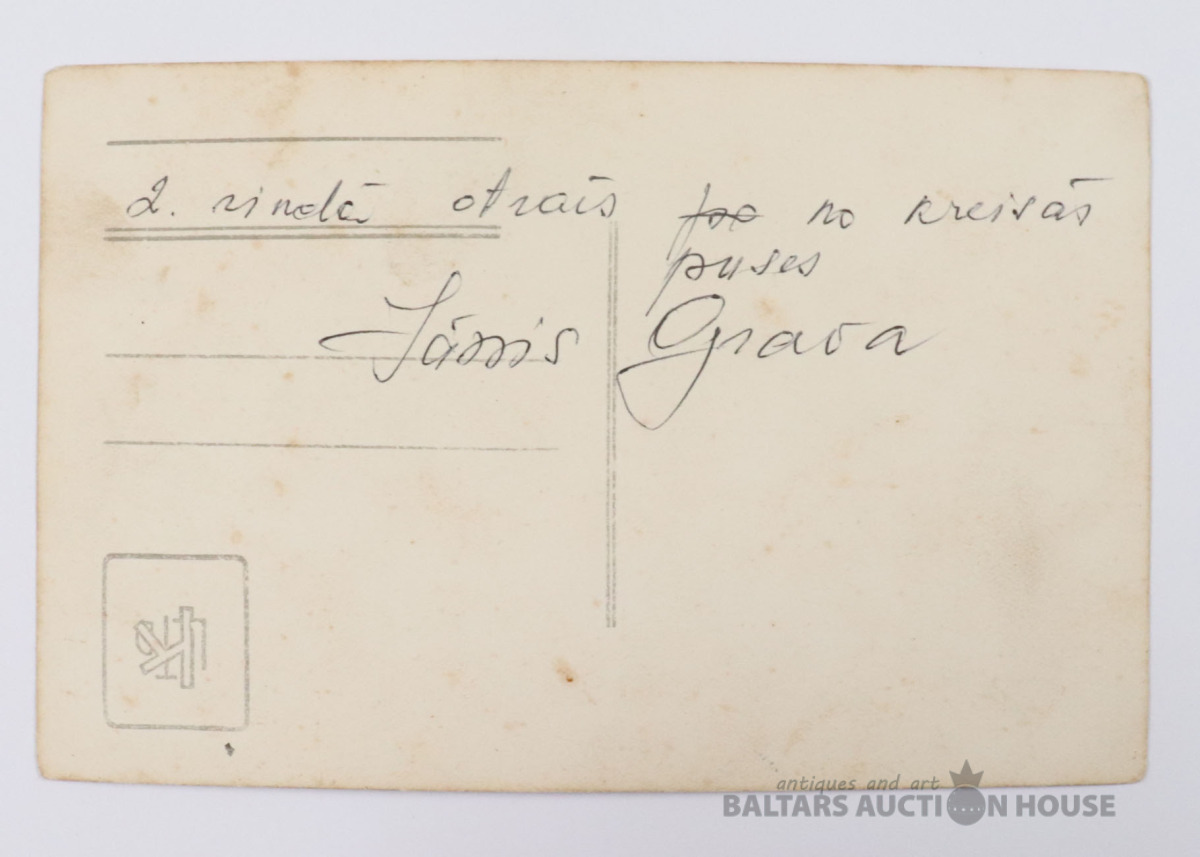 2. rindā otrais po no kreisās
puses
Jānis Grava
antiques and art
BALTARS AUCTION HOUSE